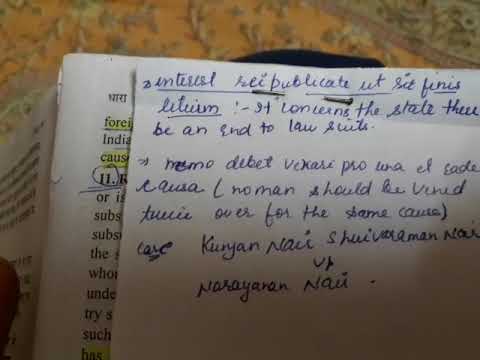 धारा
forei
India
cause
11. R
or is
subs
subs
the s
whom
unde
try s
such
has
→ interest rei publicate ut sit finis
litium :- It concerns the state there
be an end to law suits.
→ nemo debet vexari pro una et eade
causa (no man should be vexed
twice over for the same cause)
Case Kunyan Nair Shivaraman Nair
vs
Narayanan Nair.